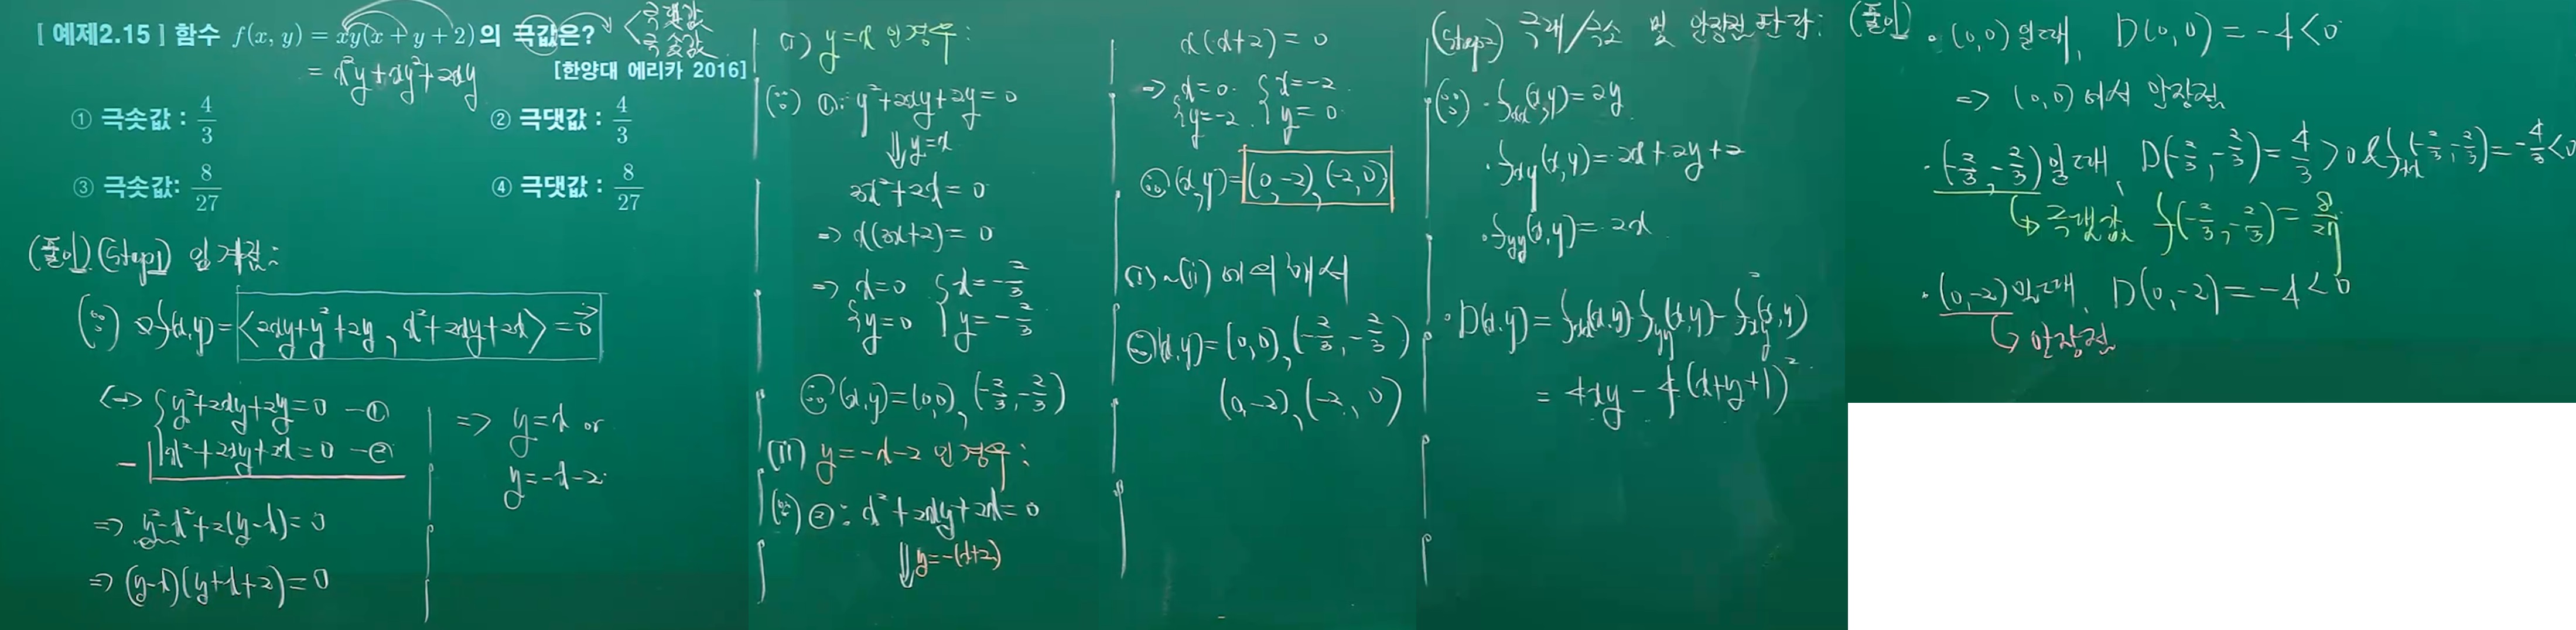 [ 예제2.15 ] 함수 f(x, y) = xy(x + y + 2)의 극값은? < 극댓값 극솟값
= x²y + xy² + 2xy
[한양대 에리카 2016]
① 극솟값 : 4/3
② 극댓값 : 4/3
③ 극솟값: 8/27
④ 극댓값 : 8/27
(풀이) (Step1) 임계점:
(∵) ∇f(x,y) = <2xy+y²+2y, x²+2xy+2x> = 0⃗
<=> { y²+2xy+2y=0 -①
- x²+2xy+2x=0 -②
=> y²-x²+2(y-x)=0
=> (y-x)(y+x+2)=0
=> y=x or
y=-x-2
(i) y=x 인 경우:
(∵) ①: y²+2xy+2y=0
⇓ y=x
3x²+2x=0
=> x(3x+2)=0
=> { x=0 y=0 { x=-2/3 y=-2/3
∴ (x,y)=(0,0), (-2/3, -2/3)
(ii) y=-x-2 인 경우:
(∵) ②: x²+2xy+2x=0
⇓ y=-(x+2)
x(x+2)=0
=> { x=0 y=-2 { x=-2 y=0
∴ (x,y)=(0,-2), (-2,0)
(i)~(ii)에 의해서
∴ (x,y)=(0,0), (-2/3, -2/3)
(0,-2), (-2, 0)
(Step2) 극대/극소 및 안장점 판단:
(∵) · fxx(x,y)=2y
· fxy(x,y)=2x+2y+2
· fyy(x,y)=2x
· D(x,y)=fxx(x,y)fyy(x,y)-fxy²(x,y)
= 4xy-4(x+y+1)²
(풀이) · (0,0)일때, D(0,0)=-4<0
=> (0,0)에서 안장점
· (-2/3, -2/3)일때, D(-2/3, -2/3)=4/3>0 & fxx(-2/3, -2/3)=-4/3<0
↳ 극댓값 f(-2/3, -2/3)=8/27
· (0,-2)일때, D(0,-2)=-4<0
↳ 안장점